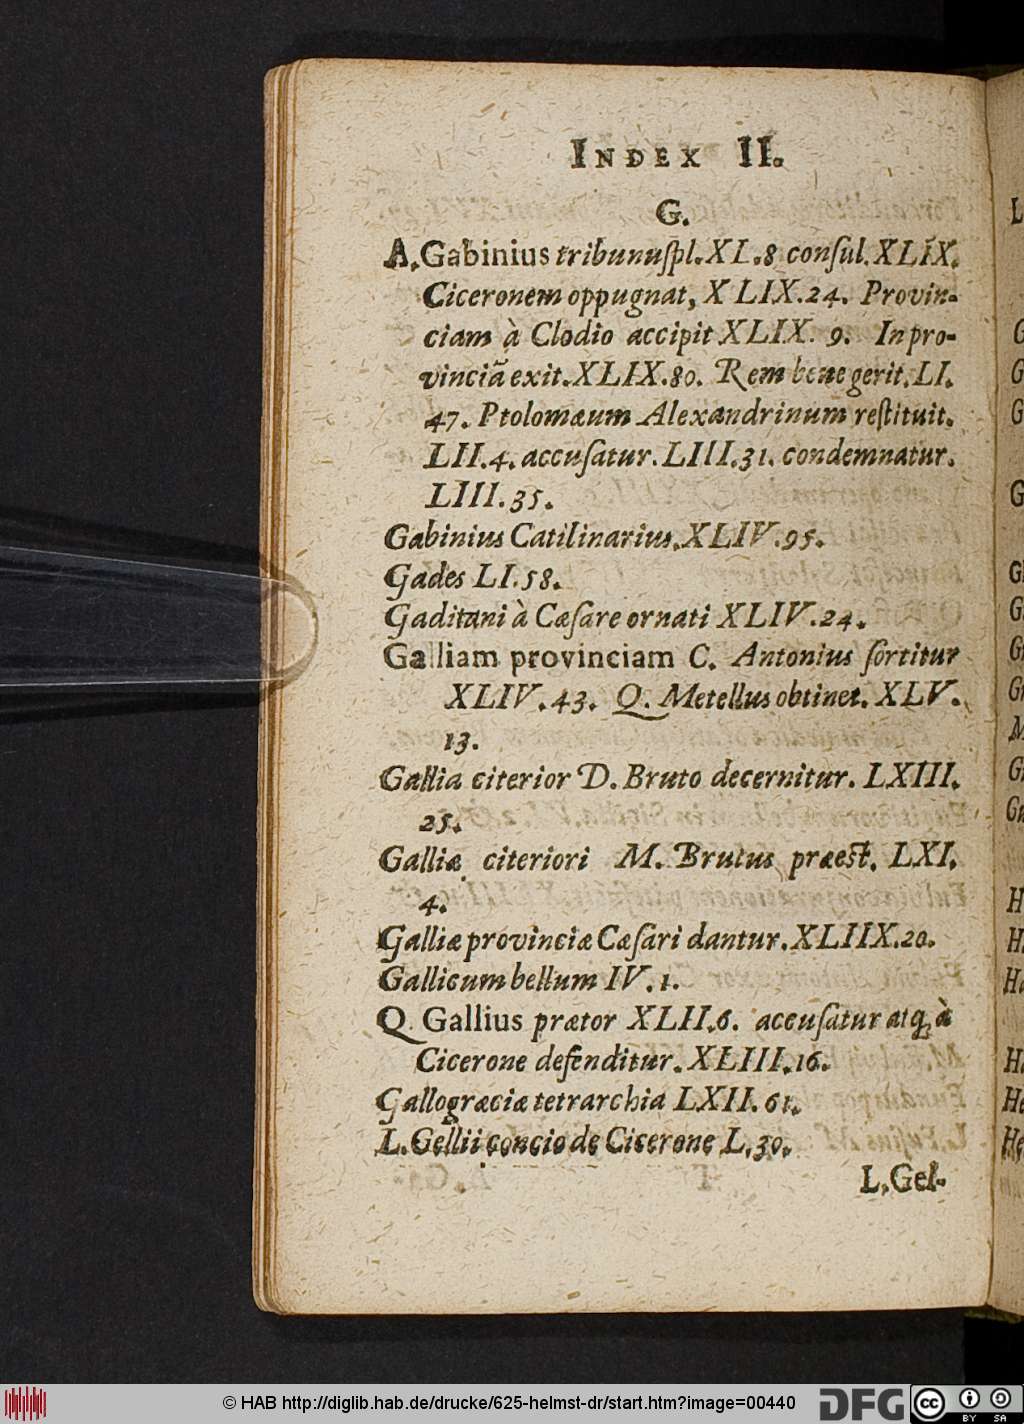 INDEX II.
G.
A. Gabinius tribunuſpl. XL. 8 conſul. XLIX.
Ciceronem oppugnat, XLIX. 24. Provin-
ciam à Clodio accipit XLIX. 9. In pro-
vinciã exit. XLIX. 80. Rem bene gerit. LI.
47. Ptolomæum Alexandrinum reſtituit.
LII. 4. accuſatur. LIII. 31. condemnatur.
LIII. 35.
Gabinius Catilinarius. XLIV. 95.
Gades LI. 58.
Gaditani à Cæſare ornati XLIV. 24.
Galliam provinciam C. Antonius ſortitur
XLIV. 43. Q. Metellus obtinet. XLV.
13.
Gallia citerior D. Bruto decernitur. LXIII.
25.
Galliæ citeriori M. Brutus præeſt. LXI.
4.
Galliæ provinciæ Cæſari dantur. XLIIX. 20.
Gallicum bellum IV. 1.
Q. Gallius prætor XLII. 6. accuſatur atq; à
Cicerone defenditur. XLIII. 16.
Gallogræciæ tetrarchia LXII. 61.
L. Gellii concio de Cicerone L. 30.
L. Gel-
© HAB http://diglib.hab.de/drucke/625-helmst-dr/start.htm?image=00440
DFG
cc
BY SA